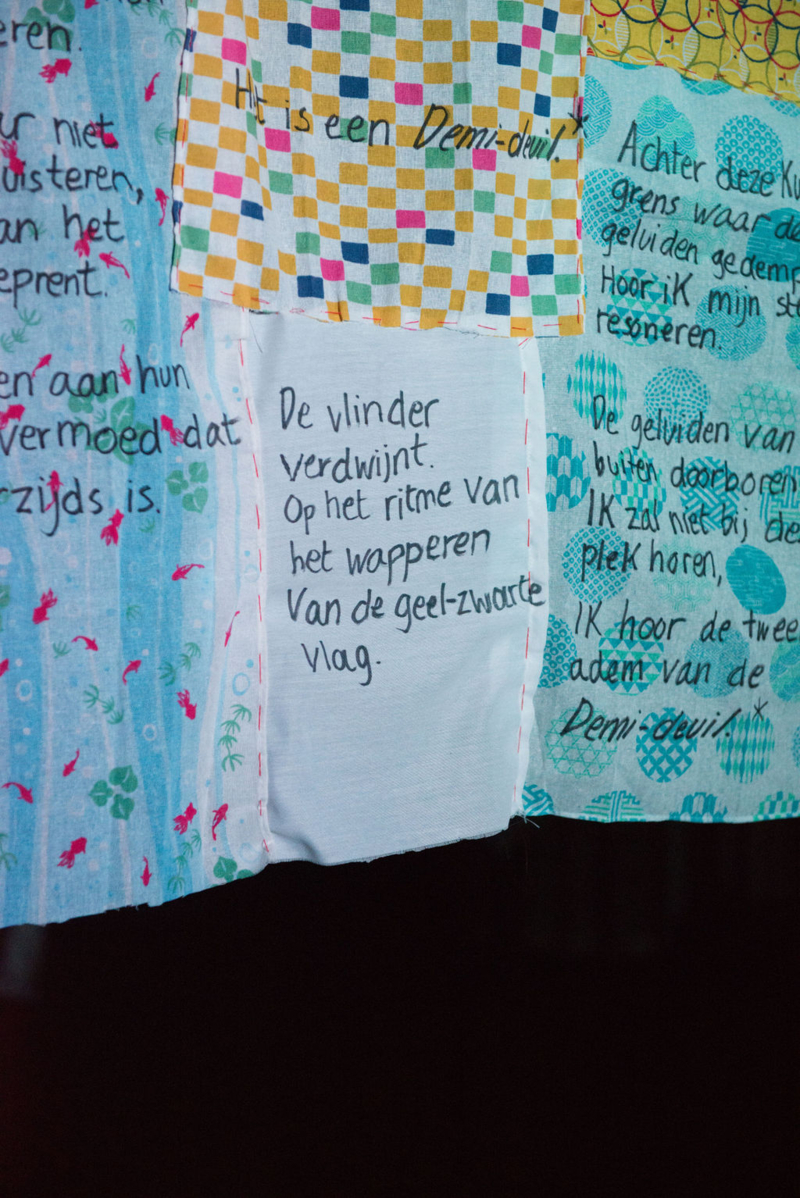 eren.
niet
uisteren,
an het
eprent.
en aan hun
vermoed dat
zijds is.
Het is een Demi-deuil.*
De vlinder
verdwijnt.
Op het ritme van
het wapperen
Van de geel-zwarte
vlag.
Achter deze
grens waar de
geluiden gedemp
Hoor ik mijn ste
resoneren.
De geluiden van
buiten doorboren
Ik zal niet bij de
plek horen,
Ik hoor de twee
adem van de
Demi-deuil.*